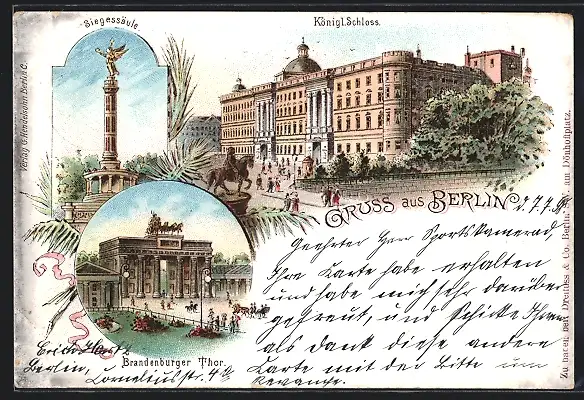 Siegessäule.
Königl. Schloss.
Verlag
Berlin C.
GRUSS aus BERLIN
d. 7.7.
Geehrter Herr Sportskamerad,
Ihre Karte habe erhalten
und habe mich sehr darüber
gefreut, und schicke Ihnen
als dank diese andere
Karte mit der Bitte um
Revanche.
Brandenburger Thor.
Erich
Berlin, Corneliusstr. 4a
Zu haben bei & Co. Berlin am Dönhoffplatz.